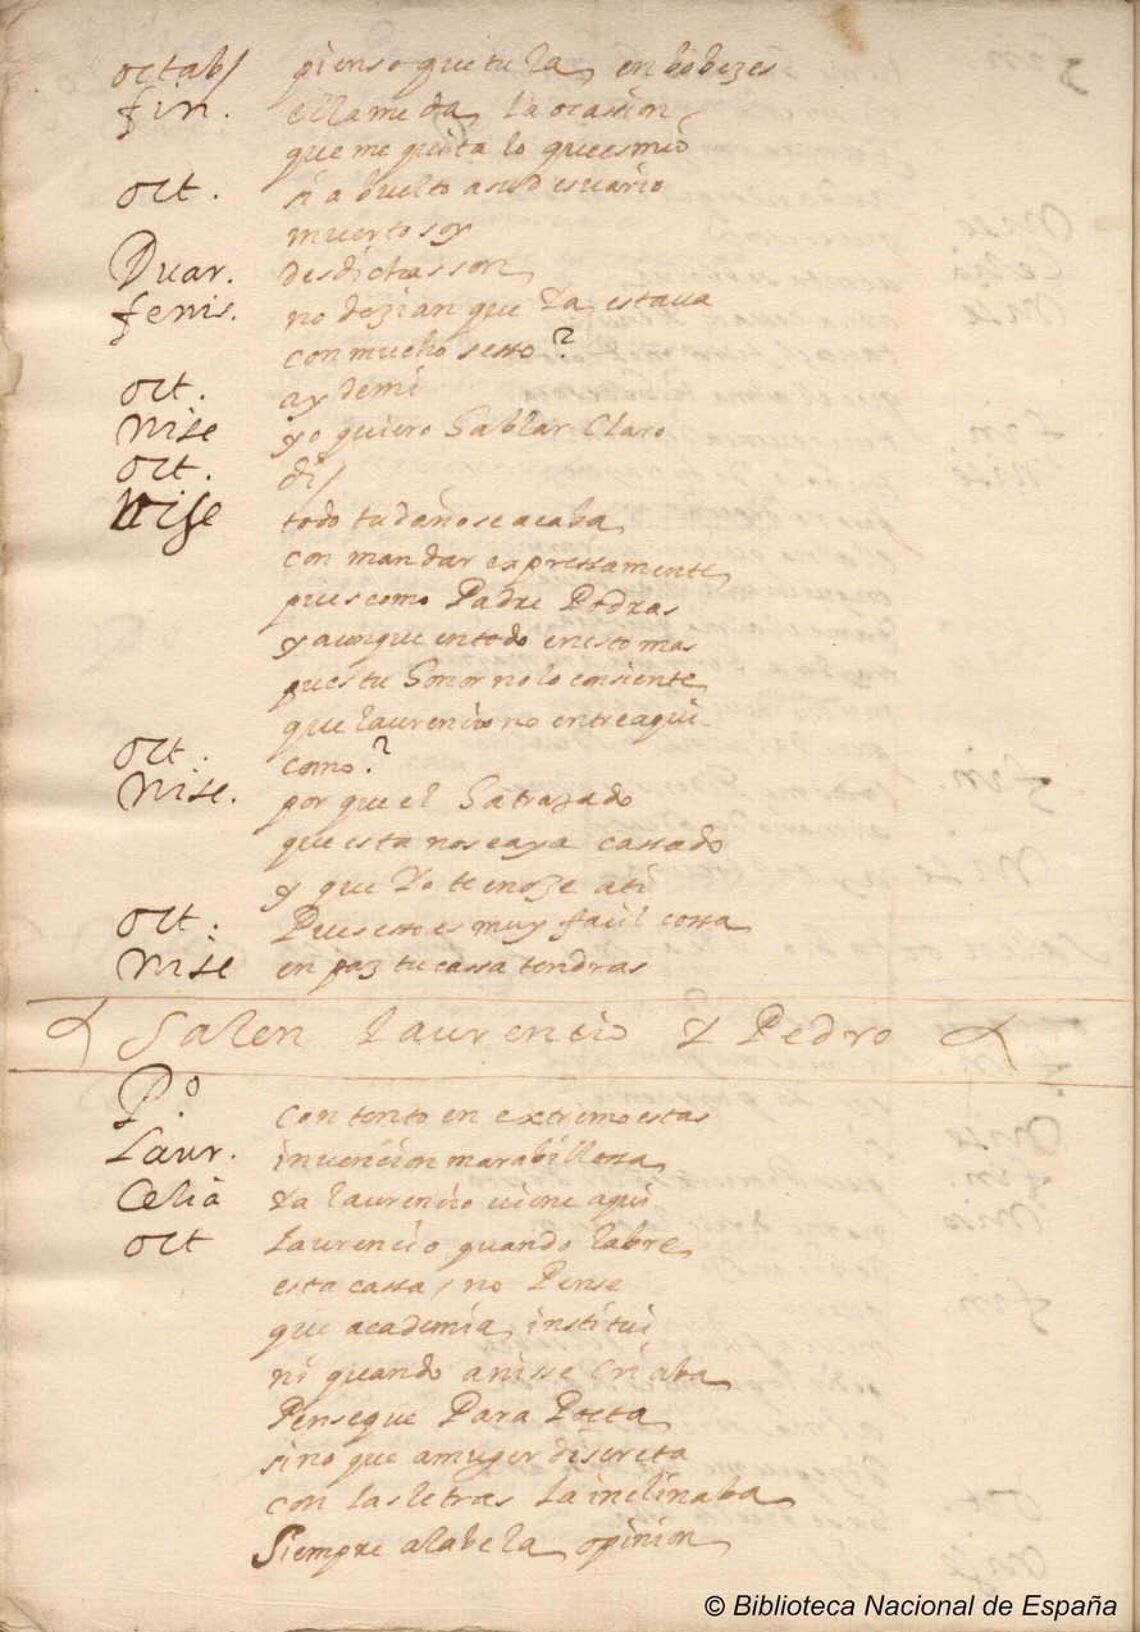 octab/ pienso que tu la en bobezes
fin. ella me da la ocassion
que me quita lo que es mio
oct. si a buelto a su desuario
muerto soy
Duar. desdichas son
fenis. no dezian que ya estaua
con mucho sesso?
oct. ay de mi
Nise yo quiero hablar Claro
oct. di/
Nise todo tu daño se acaba
con mandar expressamente
pues como Padre Podras
y aunque en todo en esto mas
pues tu honor no lo consiente
que laurencio no entre aqui
oct. como?
Nise. por que el ha trazado
que esta no se aya cassado
y que yo te enoje a ti
oct. Pues esso es muy facil cossa
Nise en paz tu cassa tendras
Salen laurencio y Pedro
P.º contento en extremo estas
Laur. inuencion marabillossa
Celia ya laurencio uiene aqui
oct laurencio quando labre
esta cassa / no Pense
que academia institui
ni quando a nisse Criaba
Pense que Para Poeta
sino que a muger discreta
con las letras la inclinaba
Siempre alabe la opinion
© Biblioteca Nacional de España